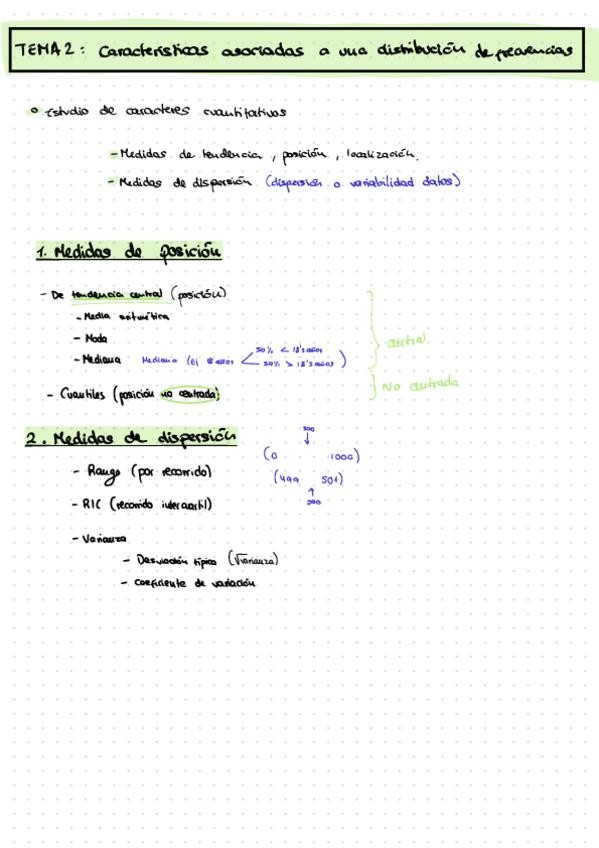 TEMA 2: Características asociadas a una distribución de frecuencias
Estudio de caracteres cuantitativos
- Medidas de tendencia, posición, localización.
- Medidas de dispersión (dispersión o variabilidad datos)
1. Medidas de posición
- De tendencia central (posición)
- Media aritmética
- Moda
- Mediana Mediana (Ej años
50% < 18'5 años
50% > 18'5 años)
central
- Cuantiles (posición no centrada)
No centrada
2. Medidas de dispersión
500
(0 1000)
- Rango (por recorrido)
(499 501)
500
- RIC (recorrido intercuartil)
- Varianza
- Desviación típica (√varianza)
- Coeficiente de variación